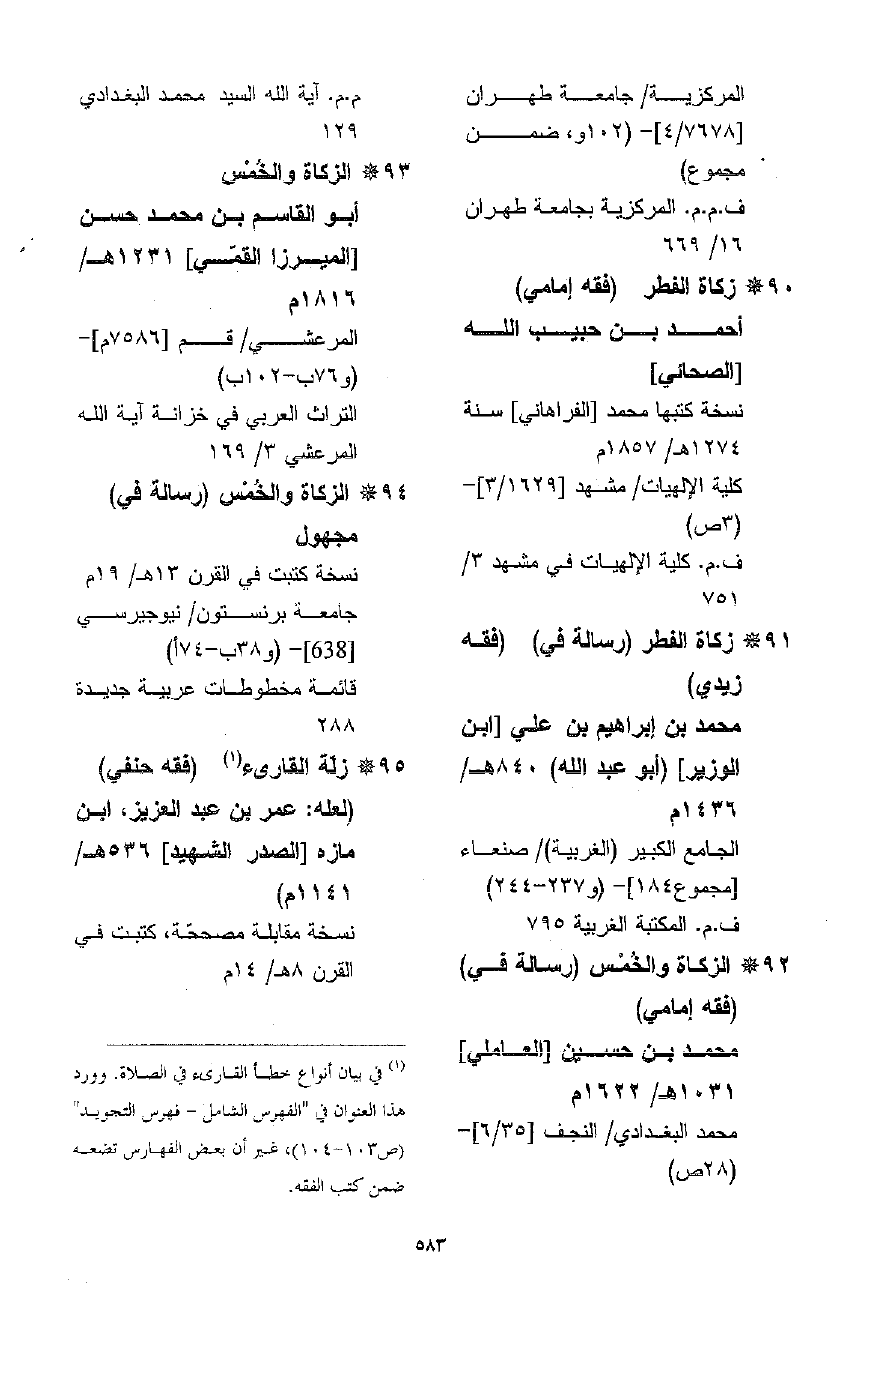 المركزية/ جامعة طهران
[٤/٧٦٧٨]- (١٠٢و، ضمن
مجموع)
ف.م.م. المركزية بجامعة طهران
١٦/ ٦٦٩
٩٠* زكاة الفطر (فقه إمامي)
أحمد بن حبيب الله
[الصحاني]
نسخة كتبها محمد [الفراهاني] سنة
١٢٧٤هـ/ ١٨٥٧م
كلية الإلهيات/ مشهد [٣/١٦٢٩]-
(٣ص)
ف.م. كلية الإلهيات في مشهد ٣/
٧٥١
٩١* زكاة الفطر (رسالة في) (فقه
زيدي)
محمد بن إبراهيم بن علي [ابن
الوزير] (أبو عبد الله) ٨٤٠هـ/
١٤٣٦م
الجامع الكبير (الغربية)/ صنعاء
[مجموع١٨٤]- (و٢٣٧-٢٤٤)
ف.م. المكتبة الغربية ٧٩٥
٩٢* الزكاة والخُمْس (رسالة في)
(فقه إمامي)
محمد بن حسين [العاملي]
١٠٣١هـ/ ١٦٢٢م
محمد البغدادي/ النجف [٦/٣٥]-
(٢٨ص)
م.م. آية الله السيد محمد البغدادي
١٢٩
٩٣* الزكاة والخُمْس
أبو القاسم بن محمد حسن
[الميرزا القمّي] ١٢٣١هـ/
١٨١٦م
المرعشي/ قم [٧٥٨٦م]-
(و٧٦ب-١٠٢ب)
التراث العربي في خزانة آية الله
المرعشي ٣/ ١٦٩
٩٤* الزكاة والخُمْس (رسالة في)
مجهول
نسخة كتبت في القرن ١٣هـ/ ١٩م
جامعة برنستون/ نيوجيرسي
[638]- (و٣٨ب-٧٤أ)
قائمة مخطوطات عربية جديدة
٢٨٨
٩٥* زلّة القارىء(١) (فقه حنفي)
(لعله: عمر بن عبد العزيز، ابن
مازه [الصدر الشهيد] ٥٣٦هـ/
١١٤١م)
نسخة مقابلة مصححّة، كتبت في
القرن ٨هـ/ ١٤م
(١) في بيان أنواع خطأ القارىء في الصلاة. وورد
هذا العنوان في "الفهرس الشامل - فهرس التجويد"
(ص١٠٣-١٠٤)، غير أن بعض الفهارس تضعه
ضمن كتب الفقه.
٥٨٣